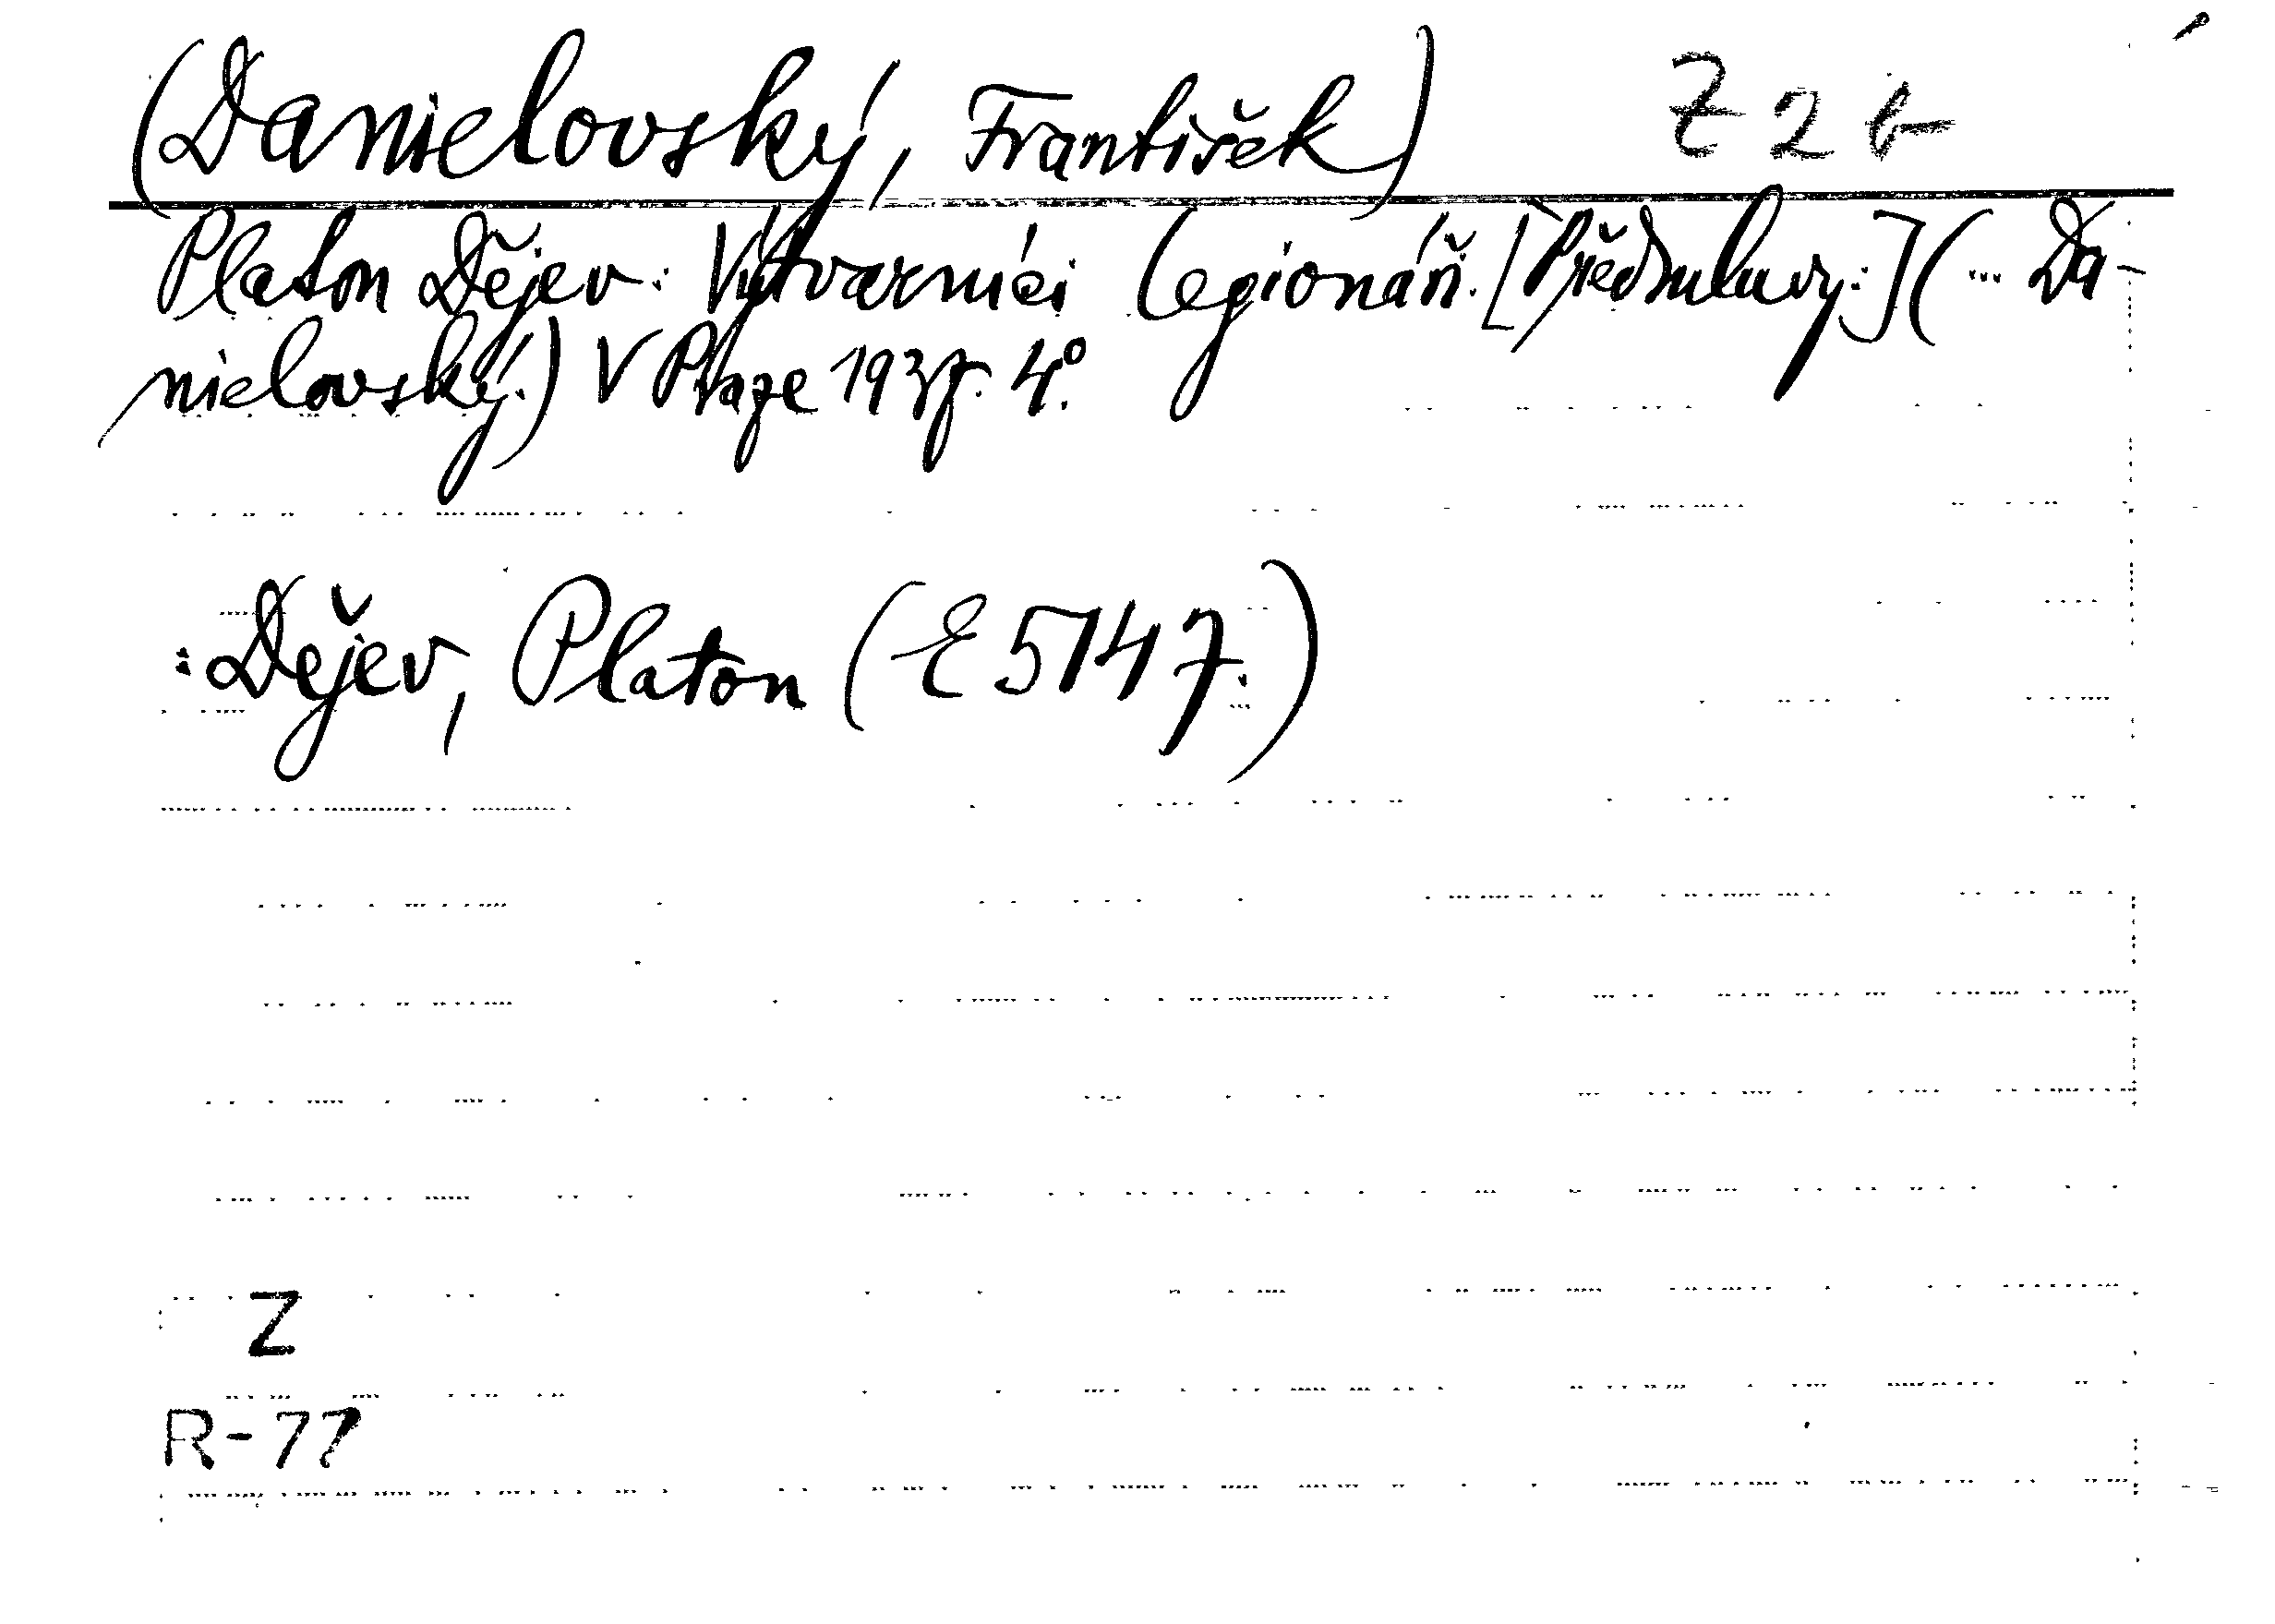 (Danielovský, František) Z 2 b
Platon Dějev: Výtvarníci legionáři. [Předmluvy:] (... Da-
nielovský.) V Praze 1937. 4°.
: Dějev, Platon (E 5147.)
Z
R-77